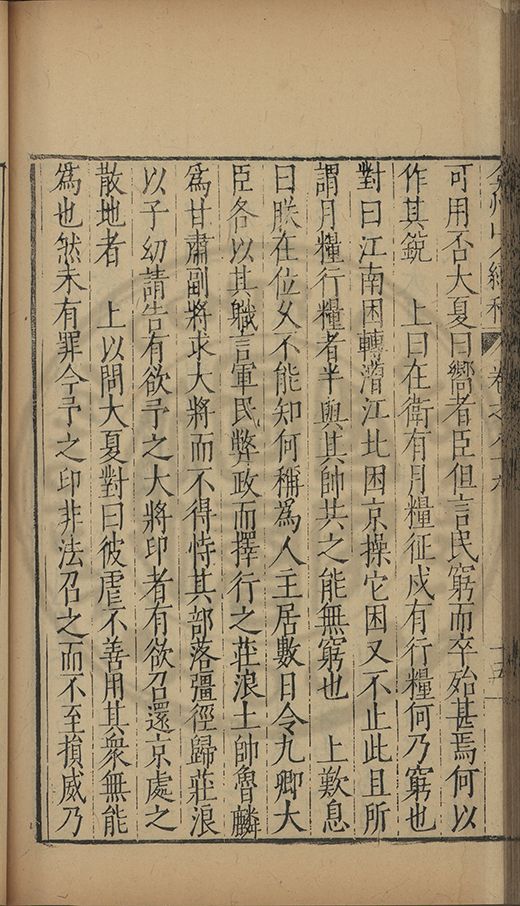 弇州山人續稿 卷之八十九
可用否大夏曰嚮者臣但言民窮而卒殆甚焉何以
作其銳 上曰在衛有月糧征戍有行糧何乃窮也
對曰江南困轉漕江北困京操它困又不止此且所
謂月糧行糧者半與其帥共之能無窮也 上歎息
曰朕在位久不能知何稱爲人主居數日令九卿大
臣各以其職言軍民弊政而擇行之莊浪土帥魯麟
爲甘肅副將求大將而不得恃其部落彊徑歸莊浪
以子幼請告有欲予之大將印者有欲召還京處之
散地者 上以問大夏對曰彼虐不善用其衆無能
爲也然未有罪今予之印非法召之而不至損威乃